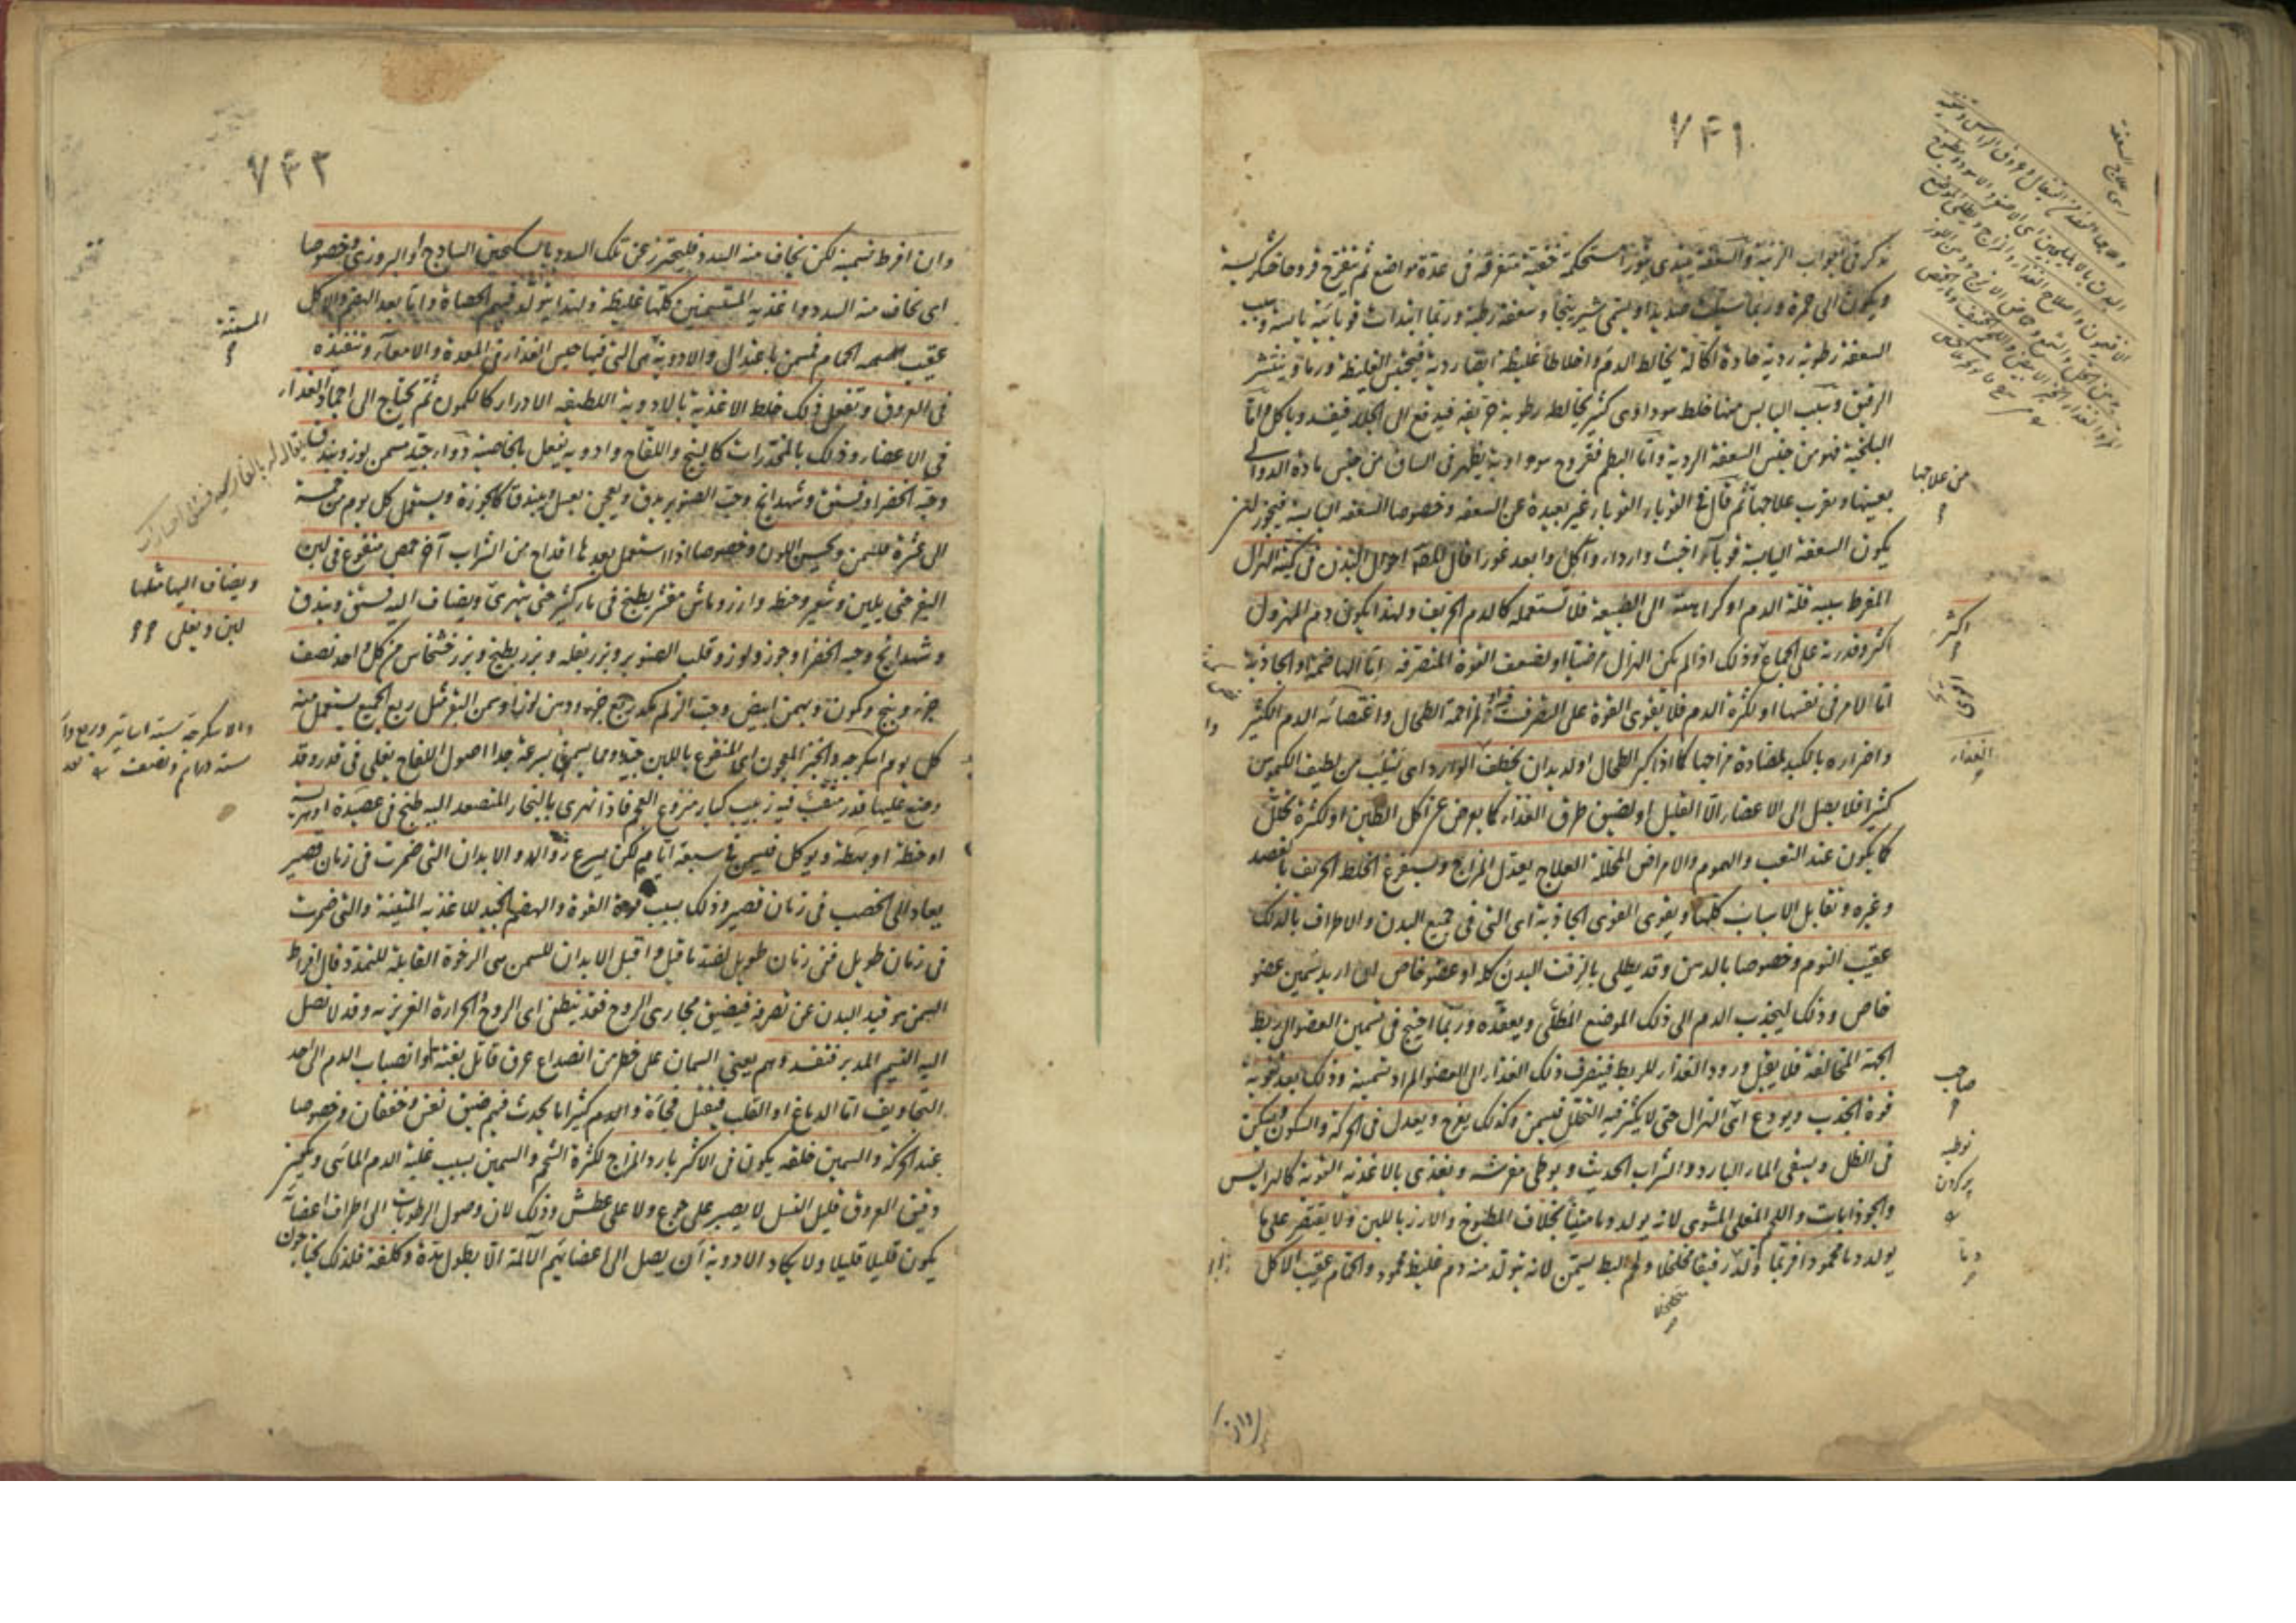 ٧٤١
نذكر في ابواب الزينة والسعفة يبتدى بثورا مستحكمة خفيفة متفرقة في عدة مواضع ثم يتقرح قروحا خشكريشية
ويكون الى حمرة وربما سيلت صديدا ويسمى شيرينجا وسعفة رطبة وربما ابتدأت قوبائية يابسة وسبب
السعفة رطوبة ردية حادة اكالة يخالط الدم واخلاطا غليظة ايضا ردية فيحتبس الغليظة ورما وينتشر
الرقيق وسبب اليابس منها خلط سوداوى كثير يخالطه رطوبة حريفة فيدفع الى الجلد فيفسد وياكل اما
البلخية فهو من جنس السعفة الردية واما البطم فقروح سوداوية يظهر في الساق من جنس مادة الدوالى
بعينها ويقرب علاجها ثم قال في القوباء القوباء غير بعيدة عن السعفة وخصوصا السعفة اليابسة فيجوز ان
يكون السعفة اليابسة قوباء اخبث واردا وآكل وابعد غورا قال المص احوال البدن في كيفيته الهزال
المفرط سببه قلة الدم او كراهيته الى الطبيعة فلا تستعمله كالدم الحريف ولهذا يكون دم المهزول
اكثر وقدرته على الجماع وذلك اذا لم يكن الهزال مرضيا او لضعف القوة المتصرفة اما الهاضمة او الجاذبة
اما لامر في نفسها او لكثرة الدم فلا يقوى القوة على التصرف فيه او لمزاحمة الطحال واغتصابه الدم الكثير
واضراره بالكبد لمضادة مزاجها كما اذا كبر الطحال او لديدان يختطف الوارد اى تسلب من لطيف الكيموس
كثيرا فلا يصل الى الاعضاء الا القليل او لضيق طرق الغذاء كما يعرض عن اكل الطين او لكثرة تحلل
كما يكون عند التعب والهموم والامراض المحللة العلاج يعدل المزاج ويستفرغ الخلط الحريف بالفصد
وغيره وتقابل الاسباب كلها ويقوى القوى الجاذبة اى التى في جميع البدن والاطراف بالدلك
عقيب النوم وخصوصا بالدهن وقد يطلى بالزفت البدن كله او عضو خاص ان اريد تسمين عضو
خاص وذلك ليجذب الدم الى ذلك الموضع المطلى ويعقده وربما احتيج في تسمين العضو الى ربط
الجهة المخالفة فلا يقبل ورود الغذاء للربط فينصرف ذلك الغذاء الى العضو المراد تسمينه وذلك بعد تقوية
قوة الجذب ويودع اى الهزال حتى لا يكثر فيه التحلل فيسمن وكذلك يفرح ويعدل في الحركة والسكون ويسكن
في الظل ويسقى الماء البارد والشراب الحديث ويوطى مفرشه ويغذى بالاغذية القوية كالهرايس
والجوذابات واللحم المقلى المشوى لانه يولد دما متينا بخلاف المطبوخ والارز باللبن ولا يقتصر على ما
يولد دما محمودا فربما ولد رقيقا متحللا ولحم البط يسمن لانه يتولد منه دم غليظ محمود والحمام عقيب الاكل
من علاجها
اكثر
الغذاء
صاحب
٧٤٢
وان افرط تسمينه لكن يخاف منه السدد فليتحرز عن تلك السدد بالسكنجبين الساذج او البزورى وخصوصا
اى يخاف منه السدد واغذية المتسمنين كلها غليظة ولهذا يتولد فيهم الحصاة واما بعد الهضم والاكل
عقيب الحمام فمسمن باعتدال والادوية هى التى فيها حبس الغذاء في المعدة والامعاء وتنفيذه
في العروق وتفعل ذلك خلط الاغذية بالادوية اللطيفة الادرار كالكمون ثم يحتاج الى اجماد الغذاء
في الاعضاء وذلك بالمخدرات كالبنج واللفاح وادوية يفعل بالخاصية دواء جيد مسمن لوز وبندق
وحبة الخضراء وفستق وشهدانج وحب الصنوبر يدق ويعجن بعسل ويبندق كالجوزة ويستعمل كل يوم من خمسة
الى عشرة فليسمن ويحسن اللون وخصوصا اذا استعمل بعدها اقداح من الشراب آخر حمص منقوع في لبن
البقر حتى يلين وشعير وحنطة وارز وماش مقشر يطبخ في ماء كثير حتى يتهرى ويضاف اليه فستق وبندق
وشهدانج وحبة الخضراء وجوز ولوز وقلب الصنوبر وبزر بقلة وبزر بطيخ وبزر خشخاش من كل واحد نصف
جزء وبنج وكمون وبهمن ابيض وحب الزلم مكد ربع جزء ودهن لوز وسمن البقر مثل ربع الجميع يستعمل منه
كل يوم اسكرجه والخبز المعجون اى المنقوع باللبن جيد ومما يسمن بسرعة جدا اصول اللفاح يغلى في قدر وقد
وضع عليها قدر مثقب فيه زبيب كبار منزوع العجم فاذا تهرى بالبخار المتصعد اليه طبخ في عصيدة او هريسة
او حنطة او بسطة ويوكل فليسمن في سبعة ايام لكن يسرع زواله والابدان التى ضمرت في زمان قصير
يعاد الى الخصب في زمان قصير وذلك بسبب قوة القوة والهضم الجيد للاغذية المتينة والتى ضمرت
في زمان طويل ففى زمان طويل لضد ما قيل واقبل الابدان للسمن هى الرخوة القابلة للتمدد قال افراط
السمن هو قيد البدن عن تصرفه فيضيق مجارى الروح فقد ينطفى اى الروح الحرارة الغريزية وقد لا يصل
اليه النسيم المدبر فتفسد وهم يعنى السمان على خطر من انصداع عرق قاتل بغتة او انصباب الدم الى احد
التجاويف اما الدماغ او القلب فيقتل فجأة والدم كثيرا ما يحدث فيهم ضيق نفس وخفقان وخصوصا
عند الحركة والسمين خلقة يكون في الاكثر بارد المزاج لكثرة الشحم والسمين بسبب غلبة الدم المائى ويتميز
دقيق العروق قليل النسل لا يصبر على جوع ولا على عطش وذلك لان وصول الرطوبات الى اطراف اعضائه
يكون قليلا قليلا ولا يكاد الادوية ان يصل الى اعضائهم الآلمة الا بطول مدة وكلفة فلذلك يحتاجون
ويضاف اليها مثلها
لبن ويغلى